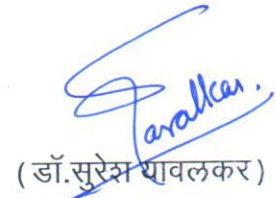 Yavalkar.
(डॉ.सुरेश यावलकर)